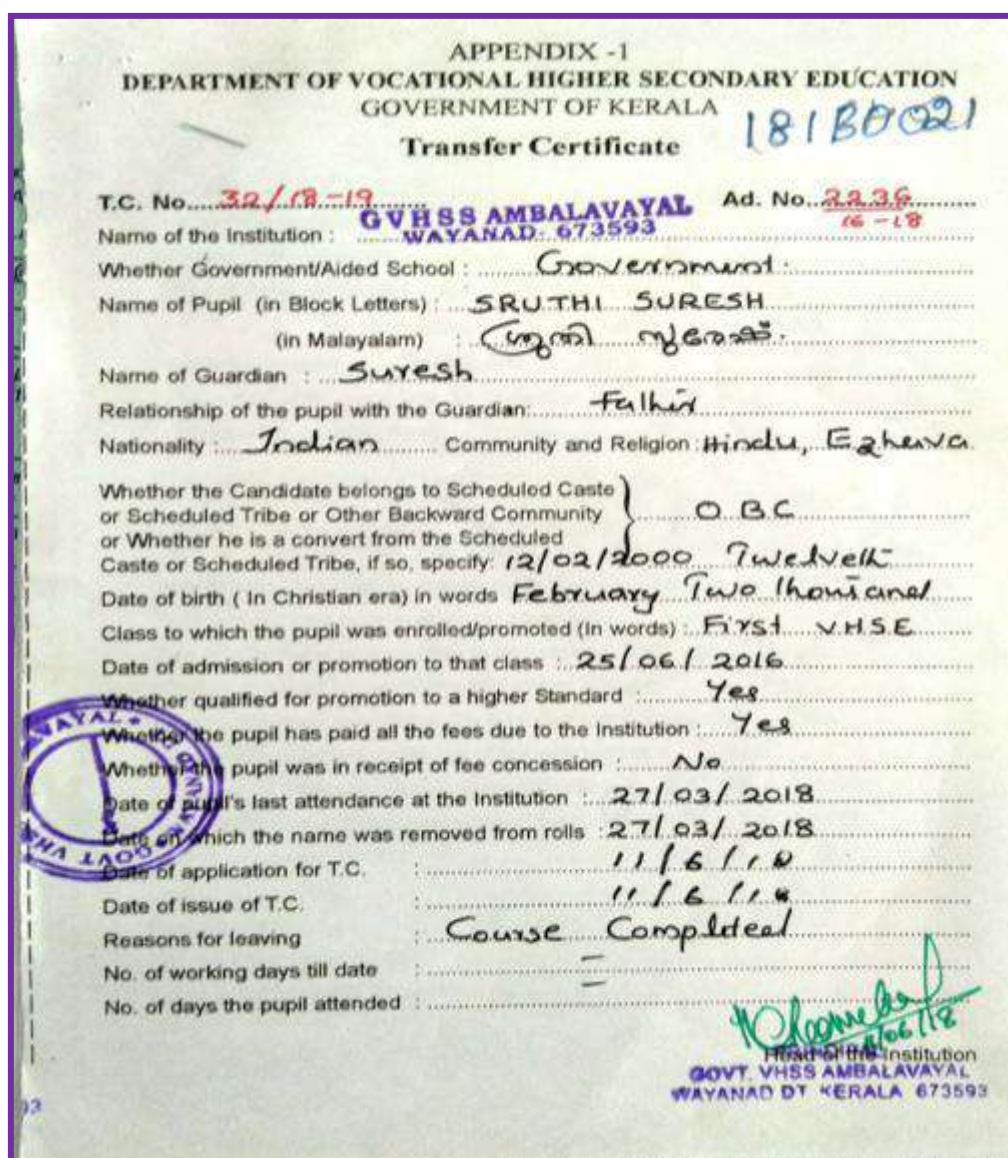 APPENDIX -1
DEPARTMENT OF VOCATIONAL HIGHER SECONDARY EDUCATION
GOVERNMENT OF KERALA
181B0021
Transfer Certificate
T.C. No. 32/18-19 Ad. No. 2236
16-18
GVHSS AMBALAVAYAL
Name of the Institution : WAYANAD- 673593
Whether Government/Aided School : Government.
Name of Pupil (in Block Letters) : SRUTHI SURESH
(in Malayalam) : ശ്രുതി സുരേഷ്.
Name of Guardian : Suresh
Relationship of the pupil with the Guardian: Father
Nationality : Indian Community and Religion : Hindu, Ezhava
Whether the Candidate belongs to Scheduled Caste
or Scheduled Tribe or Other Backward Community O B C
or Whether he is a convert from the Scheduled
Caste or Scheduled Tribe, if so, specify: 12/02/2000 Twelveth
Date of birth ( In Christian era) in words February Two thousand
Class to which the pupil was enrolled/promoted (In words) : First VHSE
Date of admission or promotion to that class : 25/06/2016
Whether qualified for promotion to a higher Standard : Yes
Whether the pupil has paid all the fees due to the Institution : Yes
Whether the pupil was in receipt of fee concession : No
Date of pupil's last attendance at the Institution : 27/03/2018
Date on which the name was removed from rolls : 27/03/2018
Date of application for T.C. : 11/6/18
Date of issue of T.C. : 11/6/18
Reasons for leaving : Course Completed
No. of working days till date : –
No. of days the pupil attended : –
11/06/18
Head of the Institution
GOVT. VHSS AMBALAVAYAL
WAYANAD DT KERALA 673593